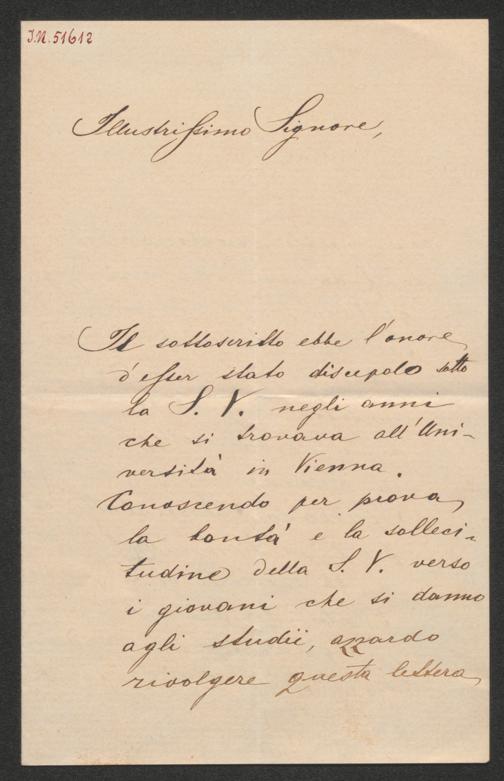 J.N. 51612
Illustrissimo Signore,
Il sottoscritto ebbe l'onore
d'esser stato discepolo sotto
la S. V. negli anni
che si trovava all'Uni-
versità in Vienna.
Conoscendo per prova
la bontà e la solleci-
tudine della S. V. verso
i giovani che si danno
agli studii, azzardo
rivolgere questa lettera